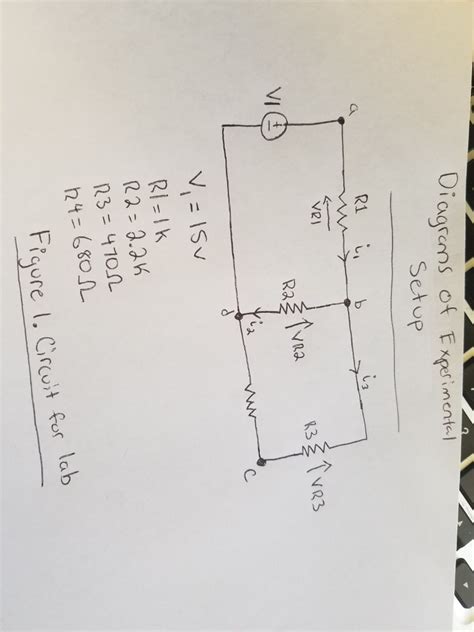 Diagrams of Experimental
Setup
a
R1
VR1
i₁
b
i₃
V1
+
−
R2
VR2
i₂
d
R3
VR3
c
V₁ = 15v
R1 = 1k
R2 = 2.2k
R3 = 470Ω
R4 = 680Ω
Figure 1. Circuit for lab